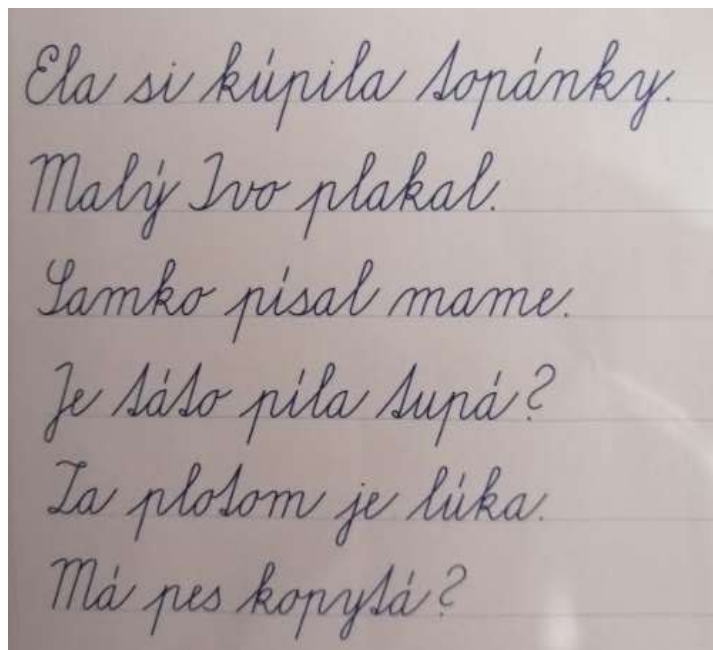 Ela si kúpila topánky.
Malý Ivo plakal.
Samko písal mame.
Je táto píla tupá?
Za plotom je lúka.
Má pes kopytá?